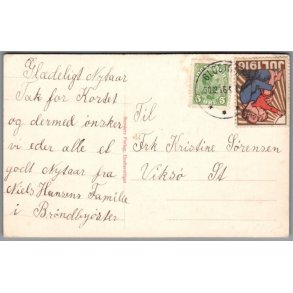 Glædeligt Nytaar
Tak for Kordet
og dermed ønsker
vi eder alle et
godt Nytaar fra
Niels Hansens Familie
i Brøndbyøster
JUL 1916
5
Til
Frk Kristine Sörensen
Viksø St